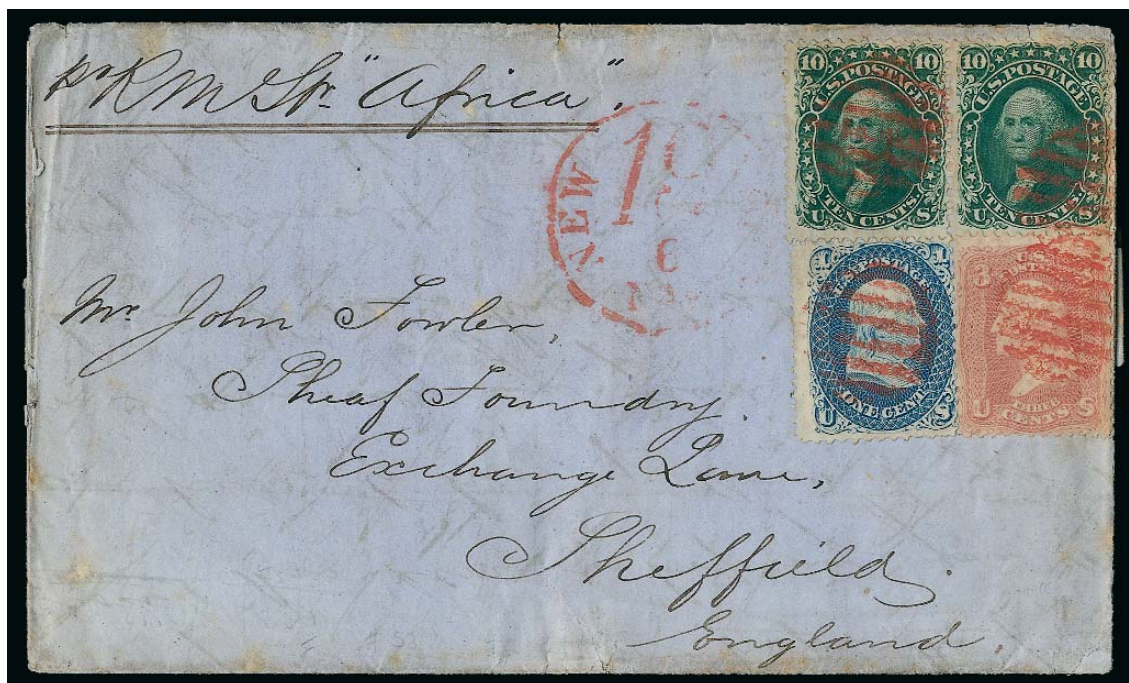 pr R M Str "Africa".
10 10
U.S. POSTAGE
U TEN CENTS. S
10 10
U.S. POSTAGE
U TEN CENTS. S
NEW
6
1 1
U.S. POSTAGE
U ONE CENT S
3
U.S.
U CENTS S
Mr. John Fowler,
Sheaf Foundry.
Exchange Lane,
Sheffield.
England.